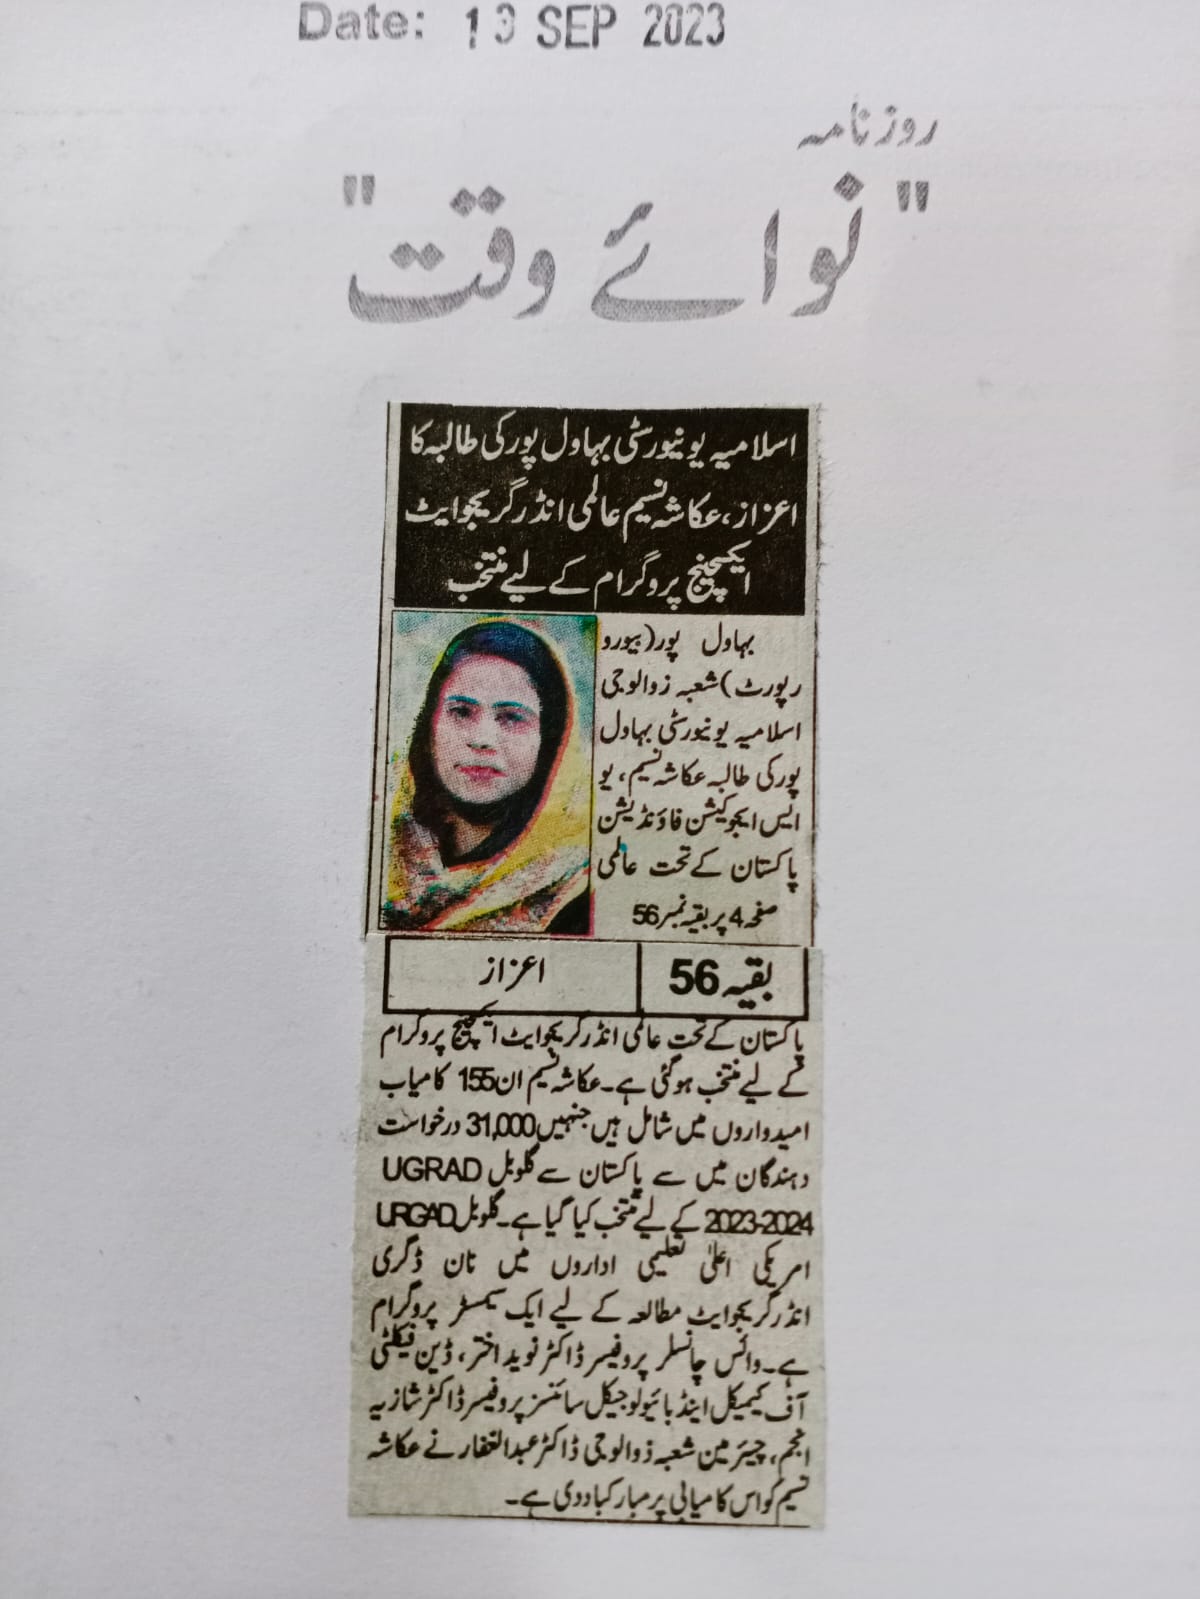 Date: 13 SEP 2023
روزنامہ
"نوائے وقت"
اسلامیہ یونیورسٹی بہاول پور کی طالبہ کا
اعزاز، عکاشہ نسیم عالمی انڈرگریجوایٹ
ایکسچینج پروگرام کے لیے منتخب
بہاول پور (بیورو
رپورٹ) شعبہ زوالوجی
اسلامیہ یونیورسٹی بہاول
پور کی طالبہ عکاشہ نسیم، یو
ایس ایجوکیشن فاؤنڈیشن
پاکستان کے تحت عالمی
صفحہ 4 پر بقیہ نمبر 56
بقیہ 56
اعزاز
پاکستان کے تحت عالمی انڈرگریجوایٹ ایکسچینج پروگرام
کے لیے منتخب ہوگئی ہے۔ عکاشہ نسیم ان 155 کامیاب
امیدواروں میں شامل ہیں جنہیں 31,000 درخواست
دہندگان میں سے پاکستان سے گلوبل UGRAD
2023-2024 کے لیے منتخب کیا گیا ہے۔ گلوبل URGAD
امریکی اعلیٰ تعلیمی اداروں میں نان ڈگری
انڈرگریجوایٹ مطالعہ کے لیے ایک سمسٹر پروگرام
ہے۔ وائس چانسلر پروفیسر ڈاکٹر نوید اختر، ڈین فیکلٹی
آف کیمیکل اینڈ بائیولوجیکل سائنسز پروفیسر ڈاکٹر شازیہ
انجم، چیئرمین شعبہ زوالوجی ڈاکٹر عبدالغفار نے عکاشہ
نسیم کو اس کامیابی پر مبارکباد دی ہے۔